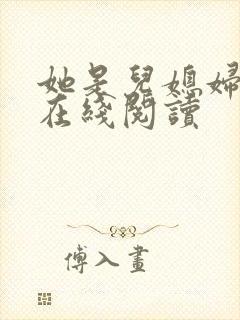 她是兒媳婦
在綫閱讀
傅入畫